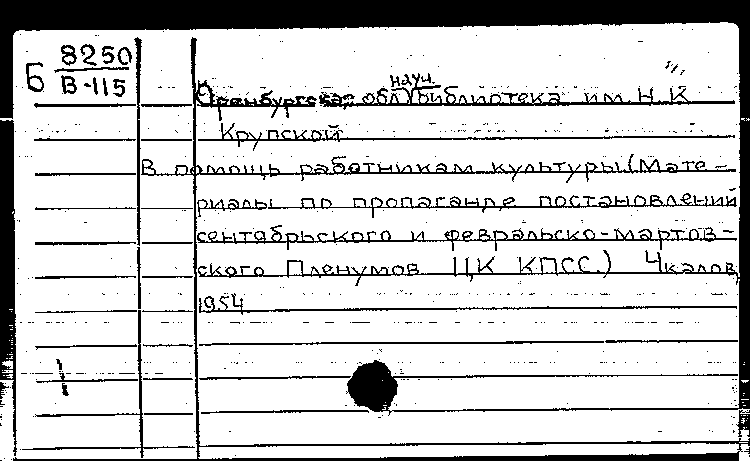 Б 8250
В-115
науч.
Оренбургская обл. библиотека им. Н. К.
Крупской
В помощь работникам культуры. (Мате-
риалы по пропаганде постановлений
сентябрьского и февральско-мартов-
ского Пленумов ЦК КПСС.) Чкалов,
1954.